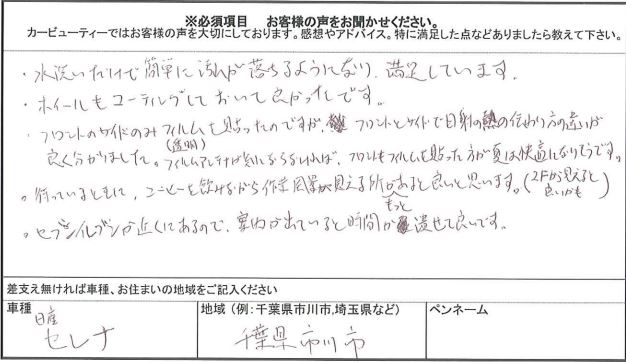 ※必須項目　お客様の声をお聞かせください。
カービューティーではお客様の声を大切にしております。感想やアドバイス。特に満足した点などありましたら教えて下さい。
・水洗いだけで簡単に汚れが落ちるようになり、満足しています。
・ホイールもコーティングしておいて良かったです。
・フロントのサイドのみフィルムを貼ったのですが、フロントとサイドで日射の熱の伝わり方の違いが
(透明)
良く分かりました。フィルムアレが気にならないければ、フロントもフィルムを貼った方が夏は快適になりそうです。
・待っているときに、コーヒーを飲みながら作業風景が見える所がもっとあると良いと思います。(2Fから見えると
良いかも)
・セブンイレブンが近くにあるので、案内が出ていると時間が潰せて良いです。
差支え無ければ車種、お住まいの地域をご記入ください
車種
日産
セレナ
地域（例：千葉県市川市,埼玉県など）
千葉県市川市
ペンネーム